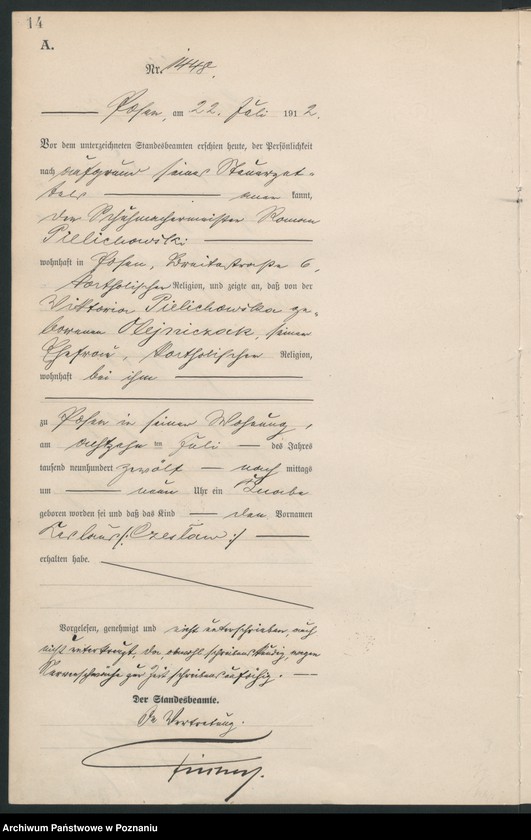 14
A.
Nr. 1448.
Posen, am 22. Juli 1912.
Vor dem unterzeichneten Standesbeamten erschien heute, der Persönlichkeit
nach aufgrund seines Steuerzet=
tels anerkannt,
der Schuhmachermeister Roman
Pielichowski
wohnhaft in Posen, Breitestraße 6,
katholischer Religion, und zeigte an, daß von der
Viktoria Pielichowska ge=
borenen Olejniczak, seiner
Ehefrau, katholischer Religion,
wohnhaft bei ihm
zu Posen in seiner Wohnung,
am achtzehnten Juli des Jahres
tausend neunhundert zwölf nach mittags
um neun Uhr ein Knabe
geboren worden sei und daß das Kind den Vornamen
Ceslaus /: Czesław :/
erhalten habe.
Vorgelesen, genehmigt und nicht unterschrieben, auch
nicht unterkreuzt, da, obwohl schreibenskundig, wegen
Nervenschwäche zur Zeit schreibensunfähig.
Der Standesbeamte.
In Vertretung.
Archiwum Państwowe w Poznaniu